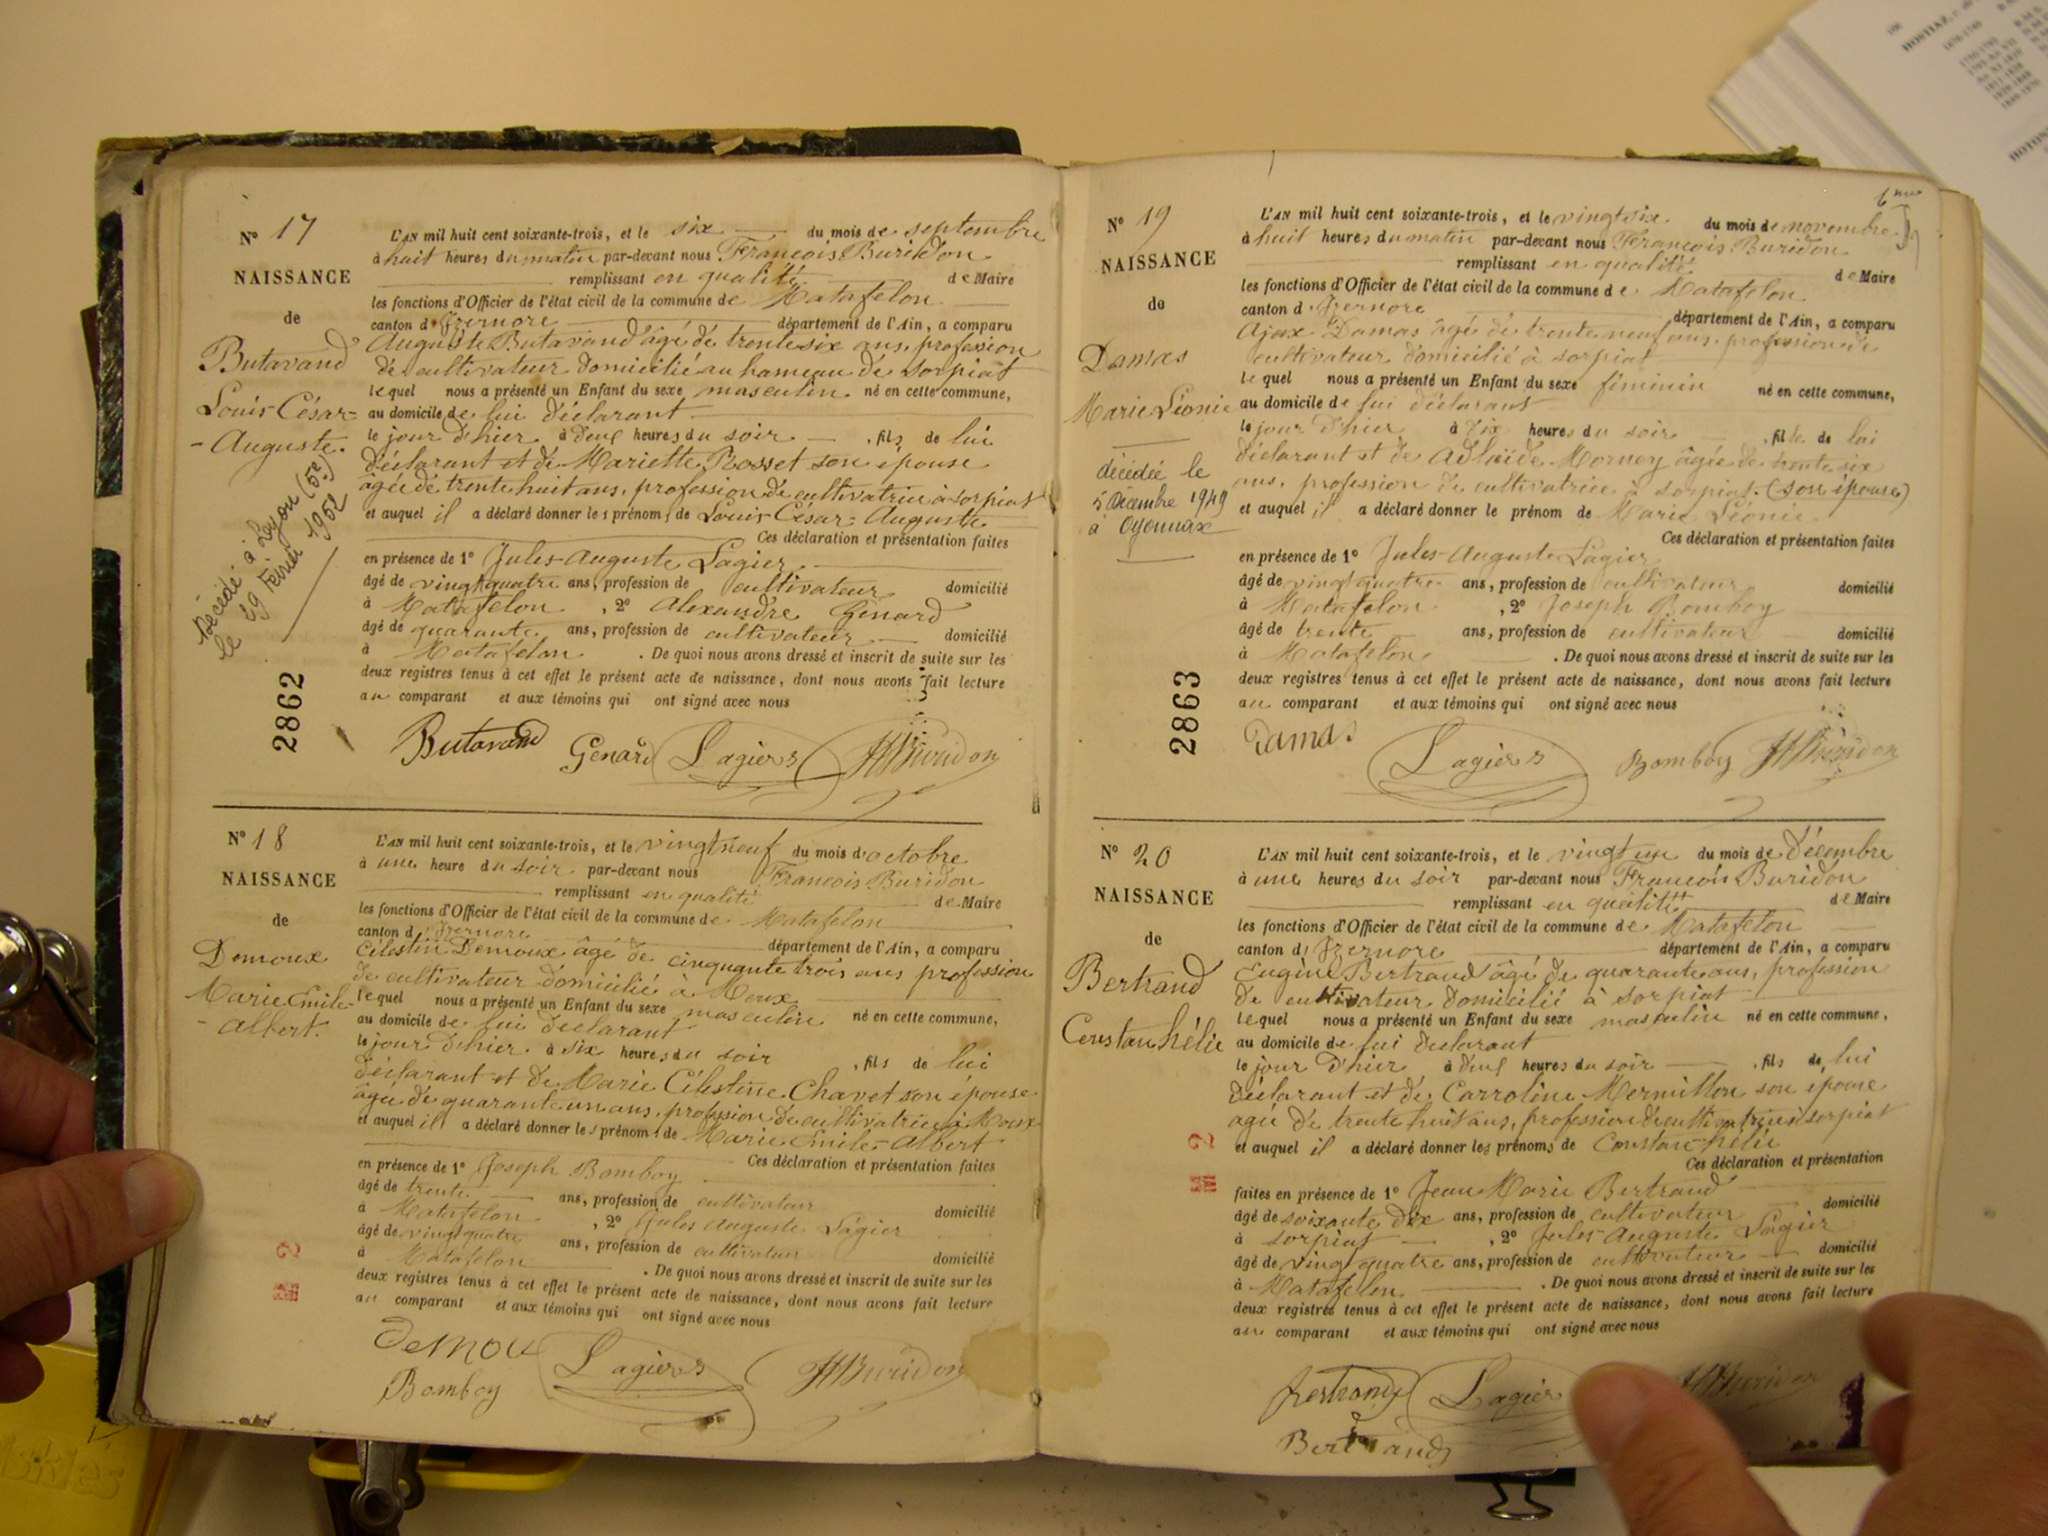 N° 17
NAISSANCE
de
Butavand
Louis César-
- Auguste.
Décédé à Lyon (5e)
le 19 Février 1952
2862
L'AN mil huit cent soixante-trois, et le six du mois de septembre
à huit heures du matin par-devant nous François Buridon
remplissant en qualité de Maire
les fonctions d'Officier de l'état civil de la commune de Matafelon
canton d'Izernore département de l'Ain, a comparu
Auguste Butavand âgé de trente six ans, profession
de cultivateur domicilié au hameau de sorpiat
lequel nous a présenté un Enfant du sexe masculin né en cette commune,
au domicile de lui déclarant
le jour d'hier à deux heures du soir , fils de lui
déclarant et de Mariette Rosset son épouse
âgée de trente huit ans, profession de cultivatrice à sorpiat
et auquel il a déclaré donner les prénoms de Louis-César-Auguste
Ces déclaration et présentation faites
en présence de 1° Jules-Auguste Lagier
âgé de vingt quatre ans, profession de cultivateur domicilié
à Matafelon , 2° Alexandre Génard
âgé de quarante ans, profession de cultivateur domicilié
à Matafelon . De quoi nous avons dressé et inscrit de suite sur les
deux registres tenus à cet effet le présent acte de naissance, dont nous avons fait lecture
au comparant et aux témoins qui ont signé avec nous
Butavand Genard Lagier Buridon
N° 18
NAISSANCE
de
Demoux
Marie Emile-
- Albert.
L'AN mil huit cent soixante-trois, et le vingt neuf du mois d'octobre
à une heure du soir par-devant nous François Buridon
remplissant en qualité de Maire
les fonctions d'Officier de l'état civil de la commune de Matafelon
canton d'Izernore département de l'Ain, a comparu
Célestin Demoux âgé de cinquante trois ans profession
de cultivateur domicilié à Moux
lequel nous a présenté un Enfant du sexe masculin né en cette commune,
au domicile de lui déclarant
le jour d'hier à six heures du soir , fils de lui
déclarant et de Marie Célestine Chavet son épouse
âgée de quarante un ans, profession de cultivatrice à Moux
et auquel il a déclaré donner les prénoms de Marie Emile-Albert
Ces déclaration et présentation faites
en présence de 1° Joseph Bomboy
âgé de trente ans, profession de cultivateur domicilié
à Matafelon , 2° Jules Auguste Lagier
âgé de vingt quatre ans, profession de cultivateur domicilié
à Matafelon . De quoi nous avons dressé et inscrit de suite sur les
deux registres tenus à cet effet le présent acte de naissance, dont nous avons fait lecture
au comparant et aux témoins qui ont signé avec nous
Demou Lagier Buridon
Bomboy
N° 19
NAISSANCE
de
Damas
Marie Léonie
décédée le
5 Décembre 1949
à Oyonnax
2863
L'AN mil huit cent soixante-trois, et le vingt six du mois de novembre
à huit heures du matin par-devant nous François Buridon
remplissant en qualité de Maire
les fonctions d'Officier de l'état civil de la commune de Matafelon
canton d'Izernore département de l'Ain, a comparu
Ajax Damas âgé de trente neuf ans, profession de
cultivateur domicilié à sorpiat
lequel nous a présenté un Enfant du sexe féminin né en cette commune,
au domicile de lui déclarant
le jour d'hier à dix heures du soir , fille de lui
déclarant et de Adlaïde Morney âgée de trente six
ans, profession de cultivatrice à sorpiat. (son épouse)
et auquel il a déclaré donner le prénom de Marie Léonie
Ces déclaration et présentation faites
en présence de 1° Jules-Auguste Lagier
âgé de vingt quatre ans, profession de cultivateur domicilié
à Matafelon , 2° Joseph Bomboy
âgé de trente ans, profession de cultivateur domicilié
à Matafelon . De quoi nous avons dressé et inscrit de suite sur les
deux registres tenus à cet effet le présent acte de naissance, dont nous avons fait lecture
au comparant et aux témoins qui ont signé avec nous
Damas Lagier Bomboy Buridon
N° 20
NAISSANCE
de
Bertrand
Constan hélie
L'AN mil huit cent soixante-trois, et le vingt un du mois de décembre
à une heures du soir par-devant nous François Buridon
remplissant en qualité de Maire
les fonctions d'Officier de l'état civil de la commune de Matafelon
canton d'Izernore département de l'Ain, a comparu
Eugène Bertrand âgé de quarante ans, profession
de cultivateur domicilié à sorpiat
lequel nous a présenté un Enfant du sexe masculin né en cette commune,
au domicile de lui déclarant
le jour d'hier à deux heures du soir , fils de lui
déclarant et de Carroline Mermillon son épouse
agée de trente huit ans, profession de cultivatrice à sorpiat
et auquel il a déclaré donner les prénoms de Constan hélie
Ces déclaration et présentation
faites en présence de 1° Jean Marie Bertrand
âgé de soixante dix ans, profession de cultivateur domicilié
à sorpiat , 2° Jules-Auguste Lagier
âgé de vingt quatre ans, profession de cultivateur domicilié
à Matafelon . De quoi nous avons dressé et inscrit de suite sur les
deux registres tenus à cet effet le présent acte de naissance, dont nous avons fait lecture
au comparant et aux témoins qui ont signé avec nous
Bertrand Lagier Buridon
Bertrand